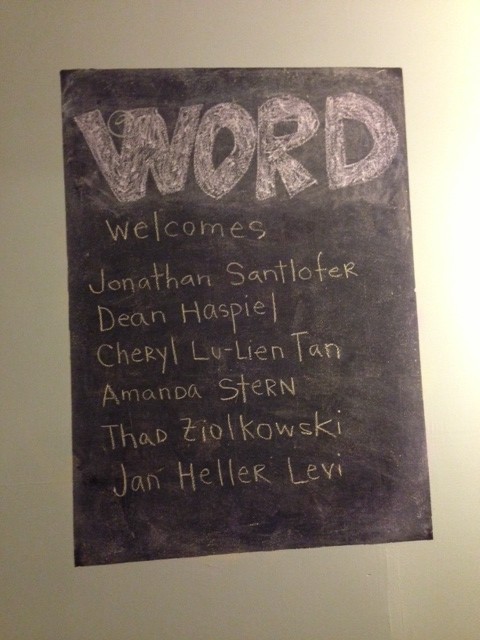 WORD
welcomes
Jonathan Santlofer
Dean Haspiel
Cheryl Lu-Lien Tan
Amanda Stern
Thad Ziolkowski
Jan Heller Levi